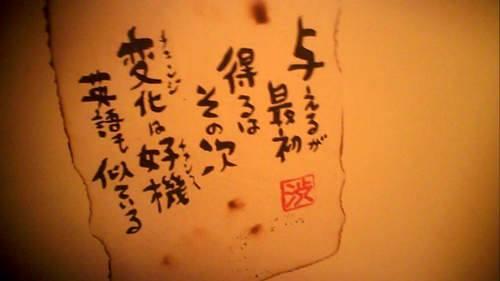 与えるが
最初
得るは
その次
チェンジ
変化は好機
チャンス
英語も似ている
渋